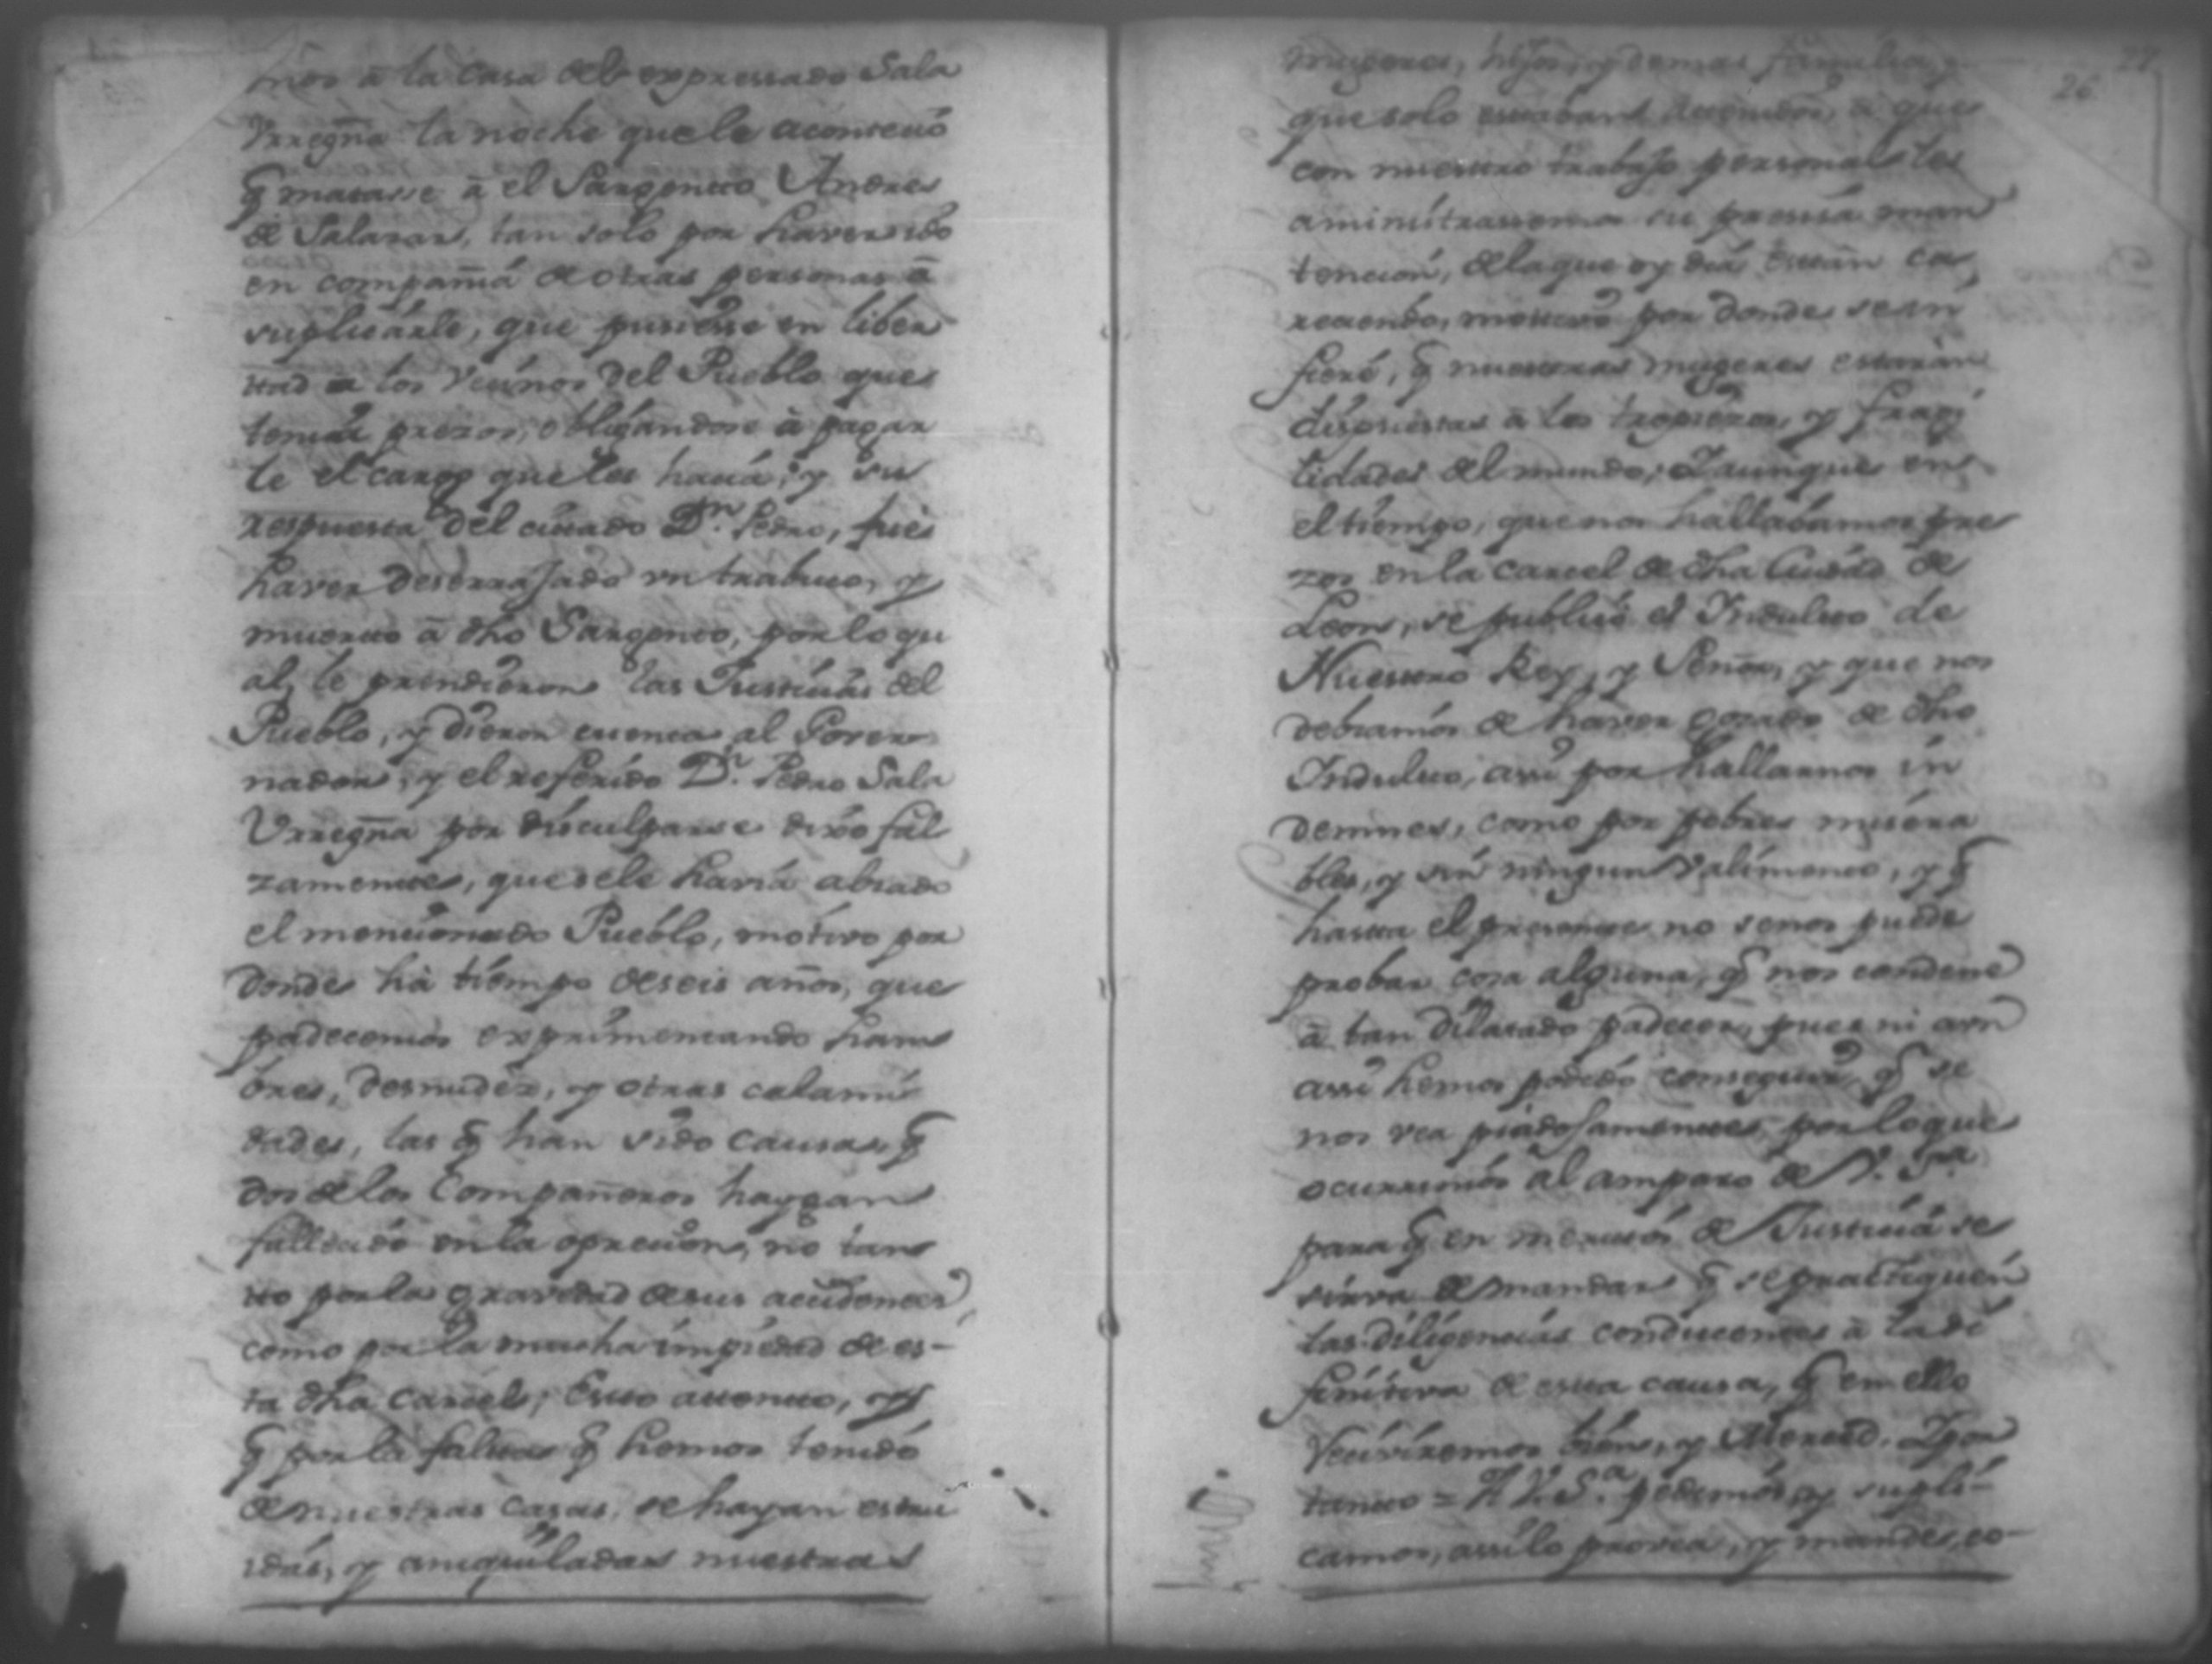 mos â la Casa del expressado Sala
Vrregña la noche que le aconteció
q̃ matasse â el Sargentto Andres
de Salazar, tan solo por haver ido
en compañiá de otras personas â
suplicárle, que pusiesse en liber
ttad a los Vecinos del Pueblo que
teniá prezos, obligándose â pagar
le el cargo que les haciá, y su
respuesta del cittado Dn. Pedro, fue
haver deserrajado vn trabuco, y
muertto â dho Sargento, por lo qu
al, le prendieron las Justicias del
Pueblo, y dieron cuenta al Gover
nador, y el referido Dn. Pedro Sala
Vrregña por disculparse dixo fal
zamente, que se le haviá alzado
el mencionado Pueblo, motivo por
donde há tiempo de seis años, que
padecemos exprimentando ham
bres, desnudéz, y otras calami
dades, las q̃ han sido causas, q̃
dos de los Compañeros haygan
fallecido en la opreción, no tan
tto por la gravedad de sus accidentes,
como por la mucha impiedad de es-
ta dha Carcel; Estto attento, y
q̃ por la faltta q̃ hemos tenido
de nuestras casas, se hayan estru
idas, y aniquiladas nuestras
27
26
mugeres, hijos, y demas familia,
que solo estaban attenidos, â que
con nuesttro trabajo personal les
aministrassemos su precisa man
tención, de la que oy diá están ca
reciendo, mottivo por donde se in
fieré, q̃ nuestras mugeres estarán
dispuestas â los tropiezos, y fragi
lidades del mundo; Y aunque en
el tiempo, que nos hallabamos pre
zos en la carcel de dha Ciudad de
Leon, se publicó el Indultto de
Nuesttro Rey, y Señor, y que nos
debiamos de haver gozado de dho
Indultto, assi por hallarnos in
demnes, como por pobres misera
bles, y sin ningun valimento, y q̃
hastta el presente no se nos puede
probar cosa alguna, q̃ nos condene
â tan dilatado padecer, pues ni aun
assi hemos podido conseguir, q̃ se
nos vea piadosamente, por lo que
ocurrimos al amparo de V. Sª
para q̃ en merittos de Justicia se
sirva de mandar q̃ se practiquen
las diligencias conducentes â la de
finitiva de estta causa, q̃ en ello
Recivirémos bien, y Merced. Y por
tantto = A V. Sª. pedimos, y supli-
camos, assi lo provea, y mande, co-